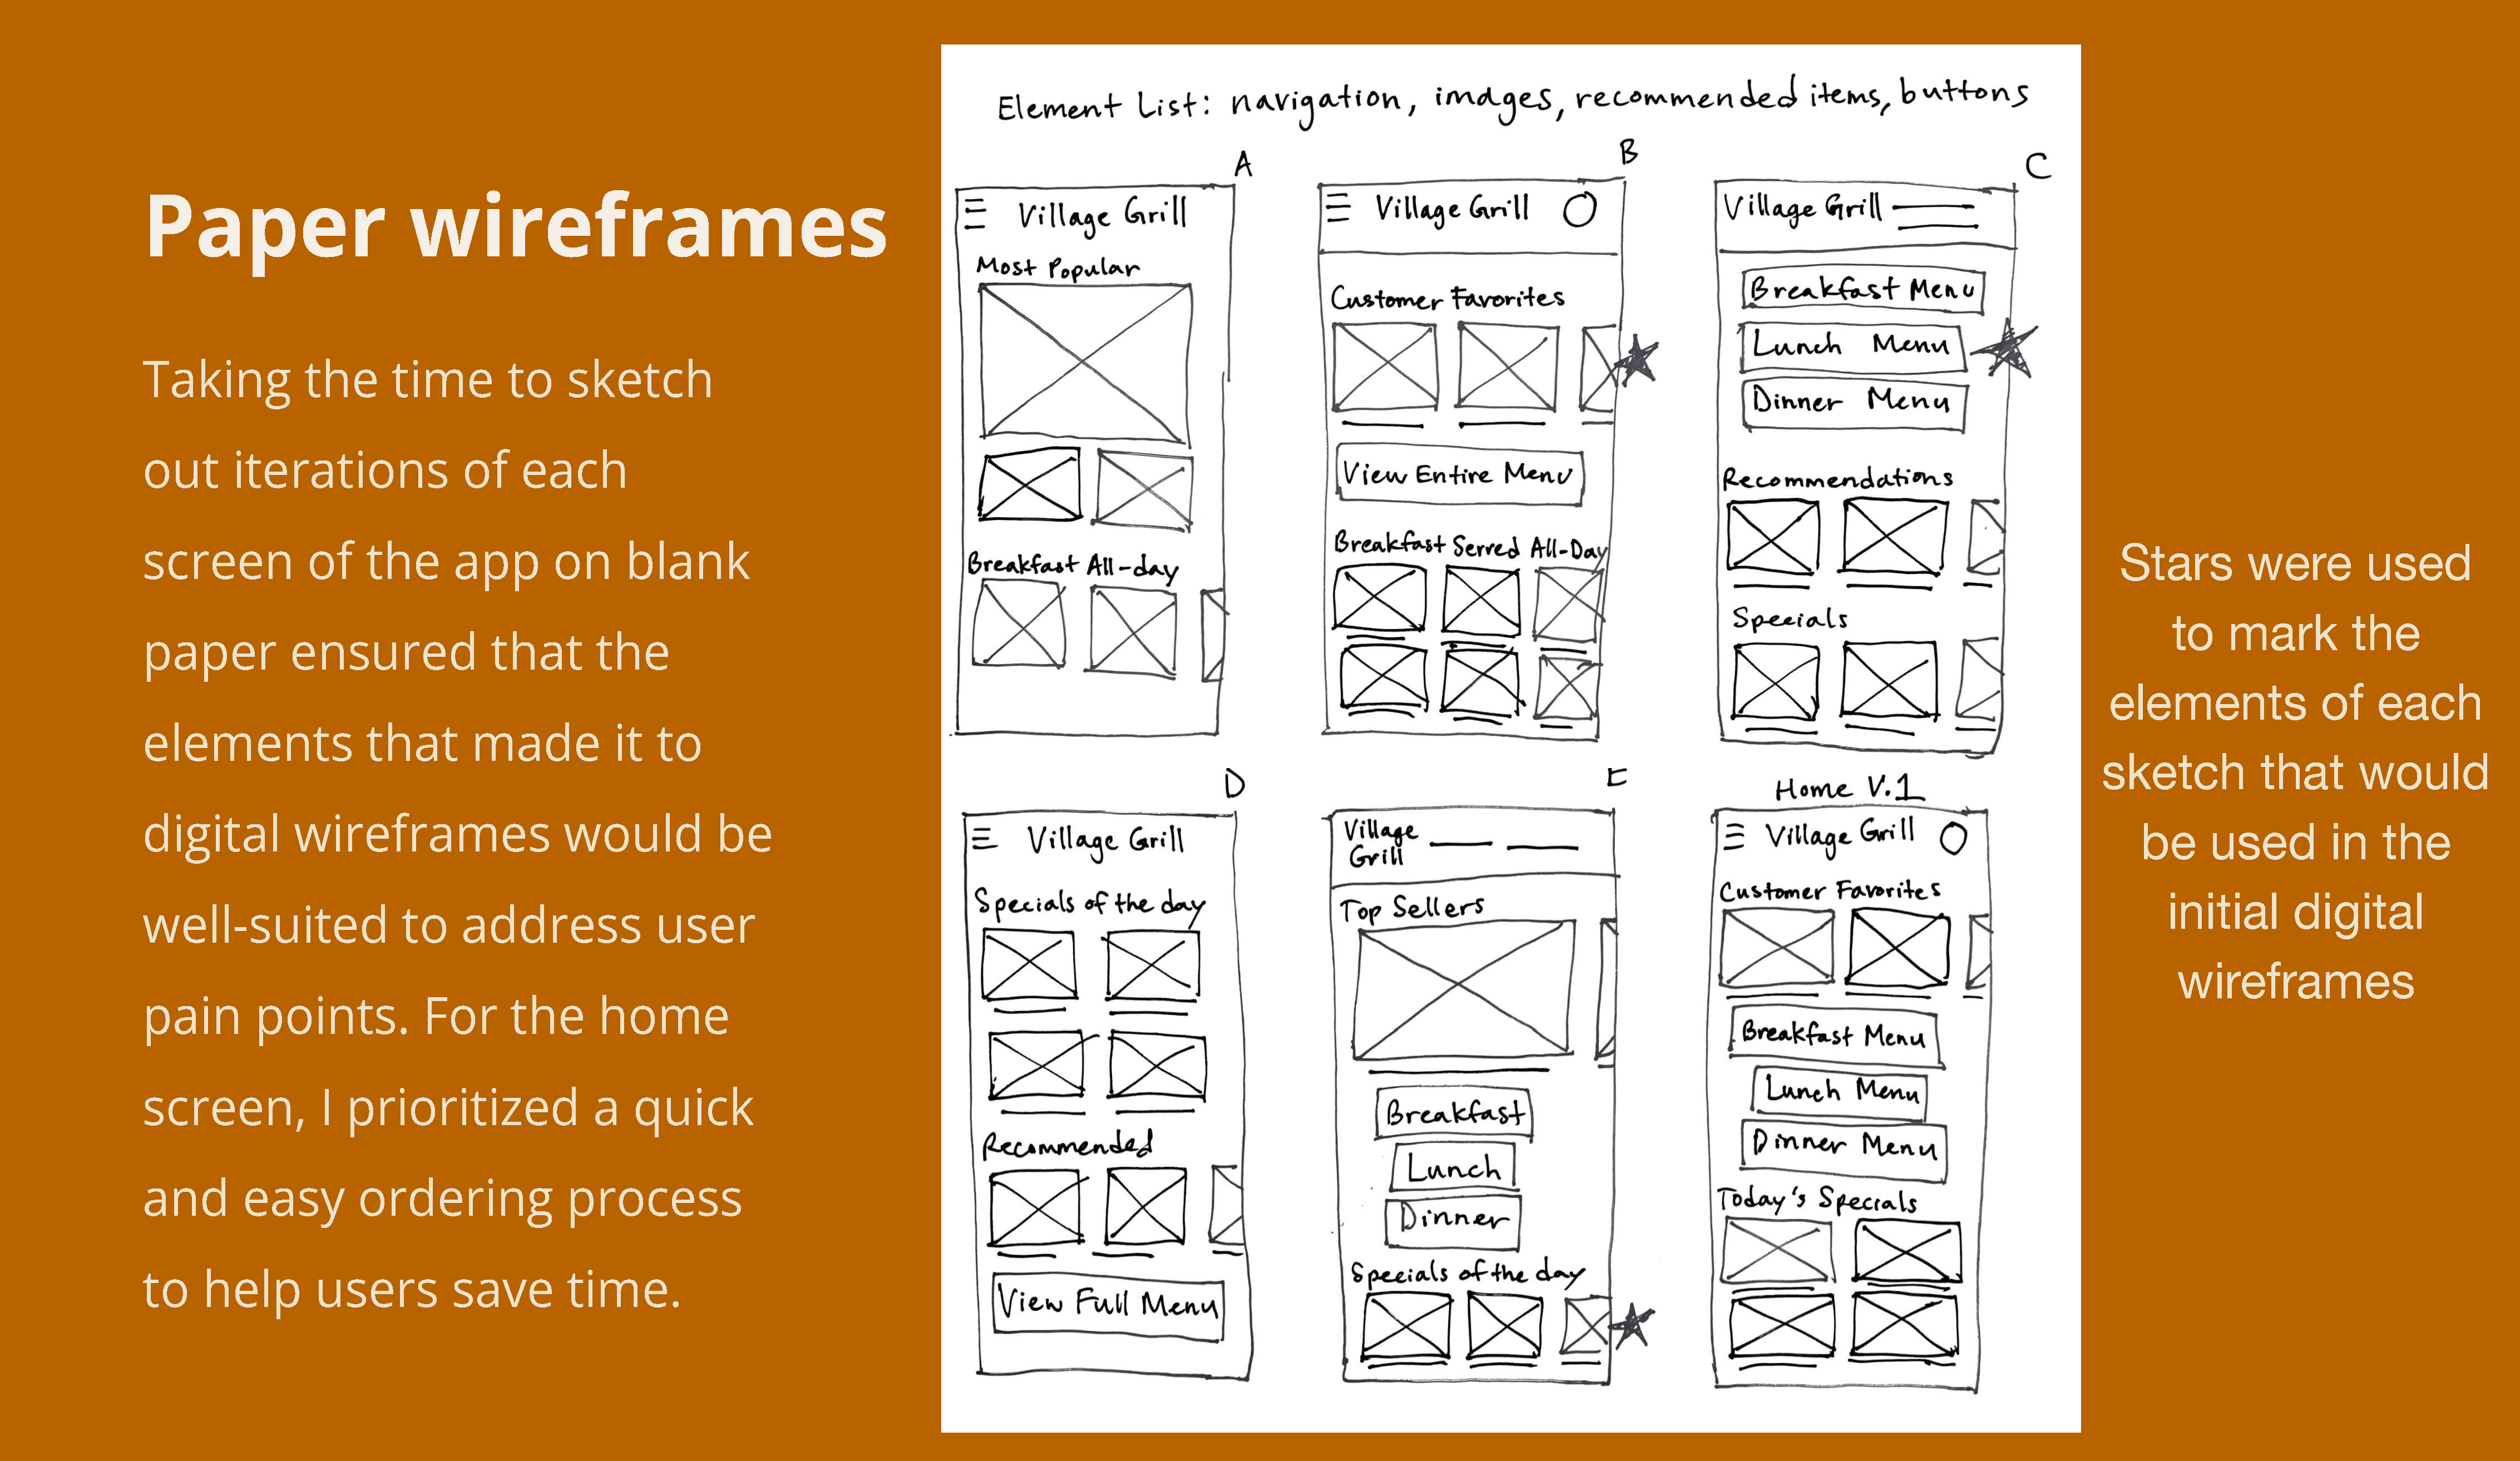 Paper wireframes
Taking the time to sketch
out iterations of each
screen of the app on blank
paper ensured that the
elements that made it to
digital wireframes would be
well-suited to address user
pain points. For the home
screen, I prioritized a quick
and easy ordering process
to help users save time.
Element List: navigation, images, recommended items, buttons
A
Village Grill
Most Popular
Breakfast All-day
B
Village Grill
Customer Favorites
View Entire Menu
Breakfast Served All-Day
C
Village Grill
Breakfast Menu
Lunch Menu
Dinner Menu
Recommendations
Specials
D
Village Grill
Specials of the day
Recommended
View Full Menu
E
Village
Grill
Top Sellers
Breakfast
Lunch
Dinner
Specials of the day
Home V.1
Village Grill
Customer Favorites
Breakfast Menu
Lunch Menu
Dinner Menu
Today's Specials
Stars were used
to mark the
elements of each
sketch that would
be used in the
initial digital
wireframes